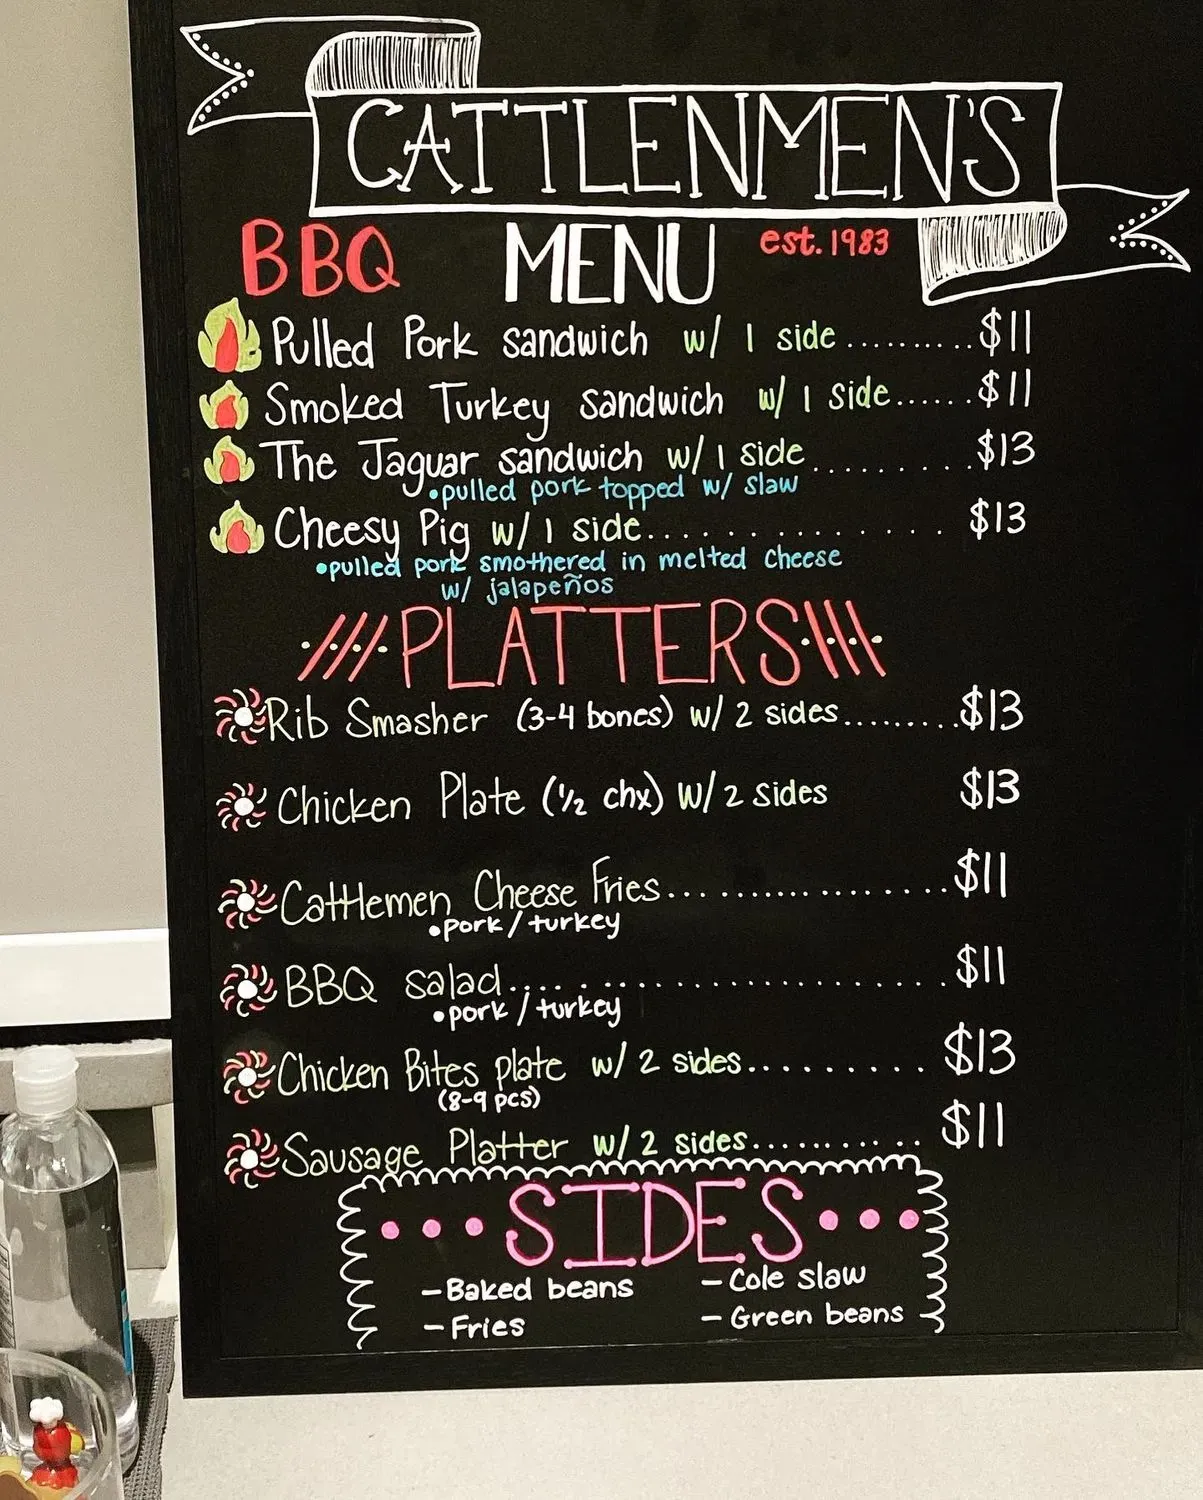 CATTLENMEN'S
BBQ MENU est. 1983
Pulled Pork sandwich w/ 1 side .......... $11
Smoked Turkey sandwich w/ 1 side ....... $11
The Jaguar sandwich w/ 1 side .......... $13
•pulled pork topped w/ slaw
Cheesy Pig w/ 1 side ............... $13
•pulled pork smothered in melted cheese
w/ jalapeños
PLATTERS
Rib Smasher (3-4 bones) w/ 2 sides ......... $13
Chicken Plate (1/2 chx) w/ 2 sides $13
Cattlemen Cheese Fries .................. $11
•pork / turkey
BBQ salad ........................ $11
•pork / turkey
Chicken Bites plate w/ 2 sides ......... $13
(8-9 pcs)
Sausage Platter w/ 2 sides .......... $11
SIDES
- Baked beans - Cole slaw
- Fries - Green beans